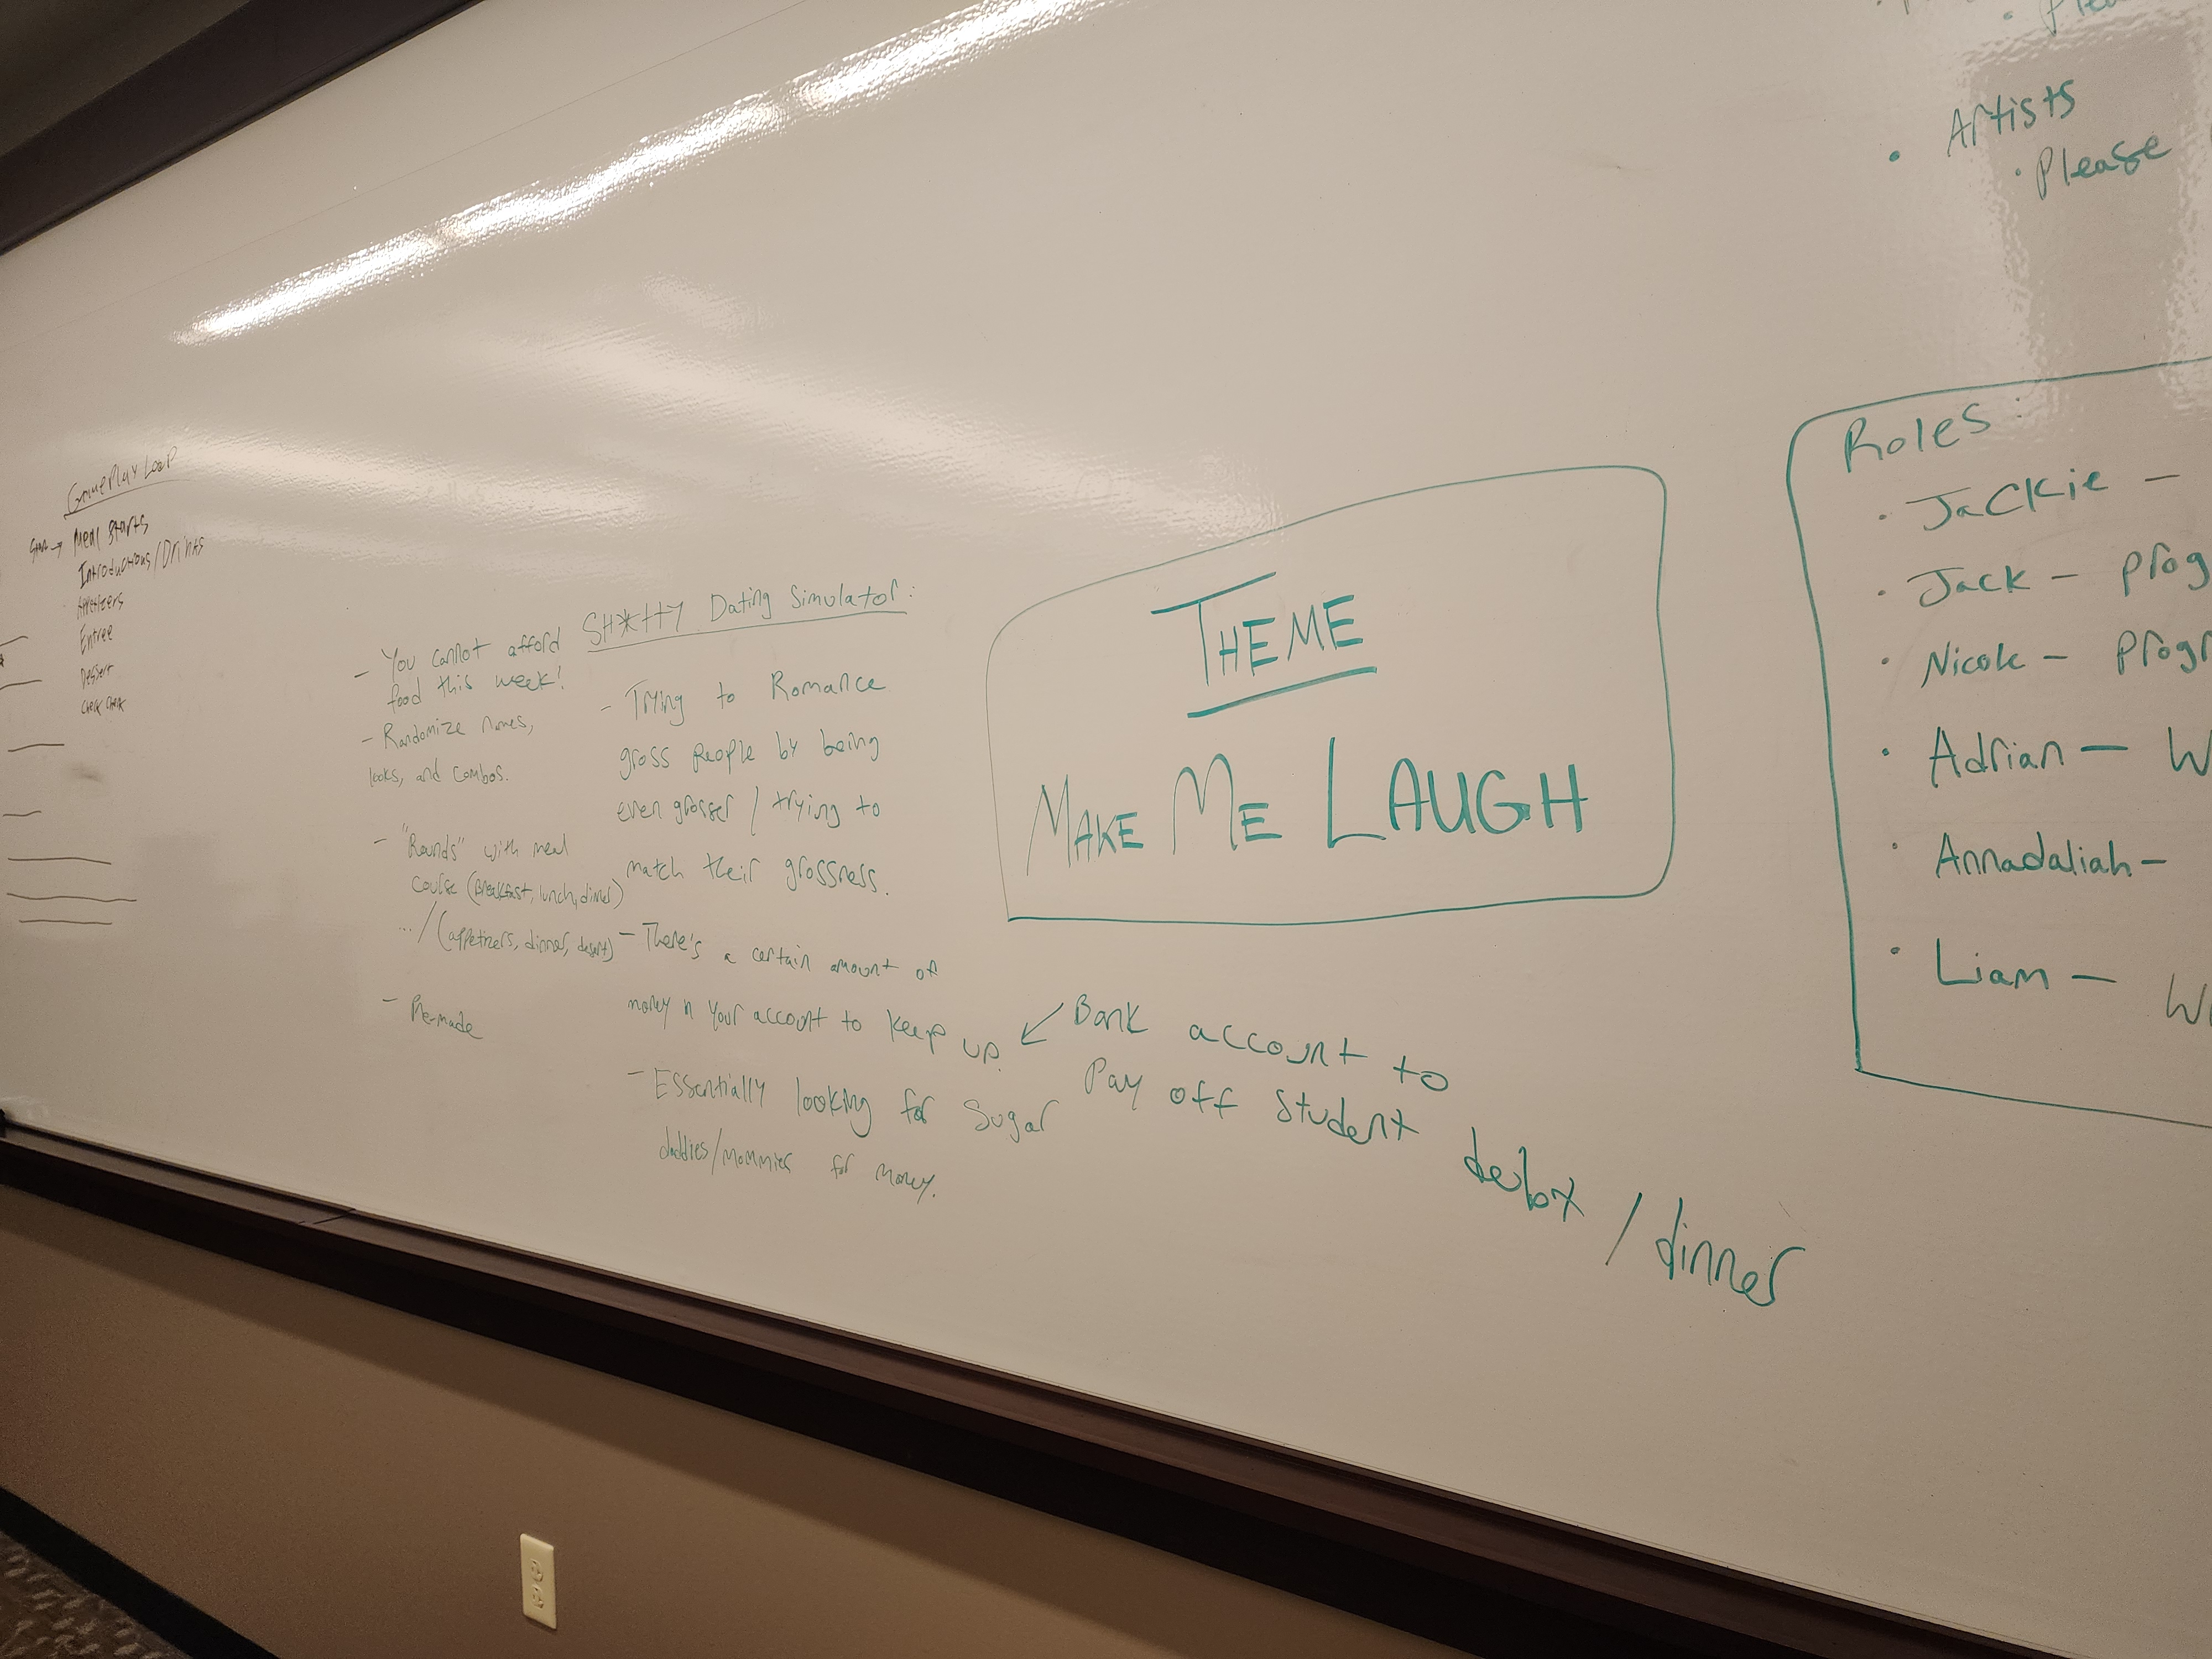 GamePlay Loop
Start → Meal Starts
Introductions/Drinks
Appetizers
Entree
Dessert
Check
SH*tty Dating Simulator:
- You cannot afford
food this week!
- Randomize names,
looks, and combos.
- "Rounds" with meal
course (Breakfast, lunch, dinner)
.../(appetizers, dinner, desert)
- Pre-made
- Trying to Romance
gross people by being
even grosser / trying to
match their grossness.
- There's a certain amount of
money in your account to keep up.
- Essentially looking for Sugar
daddies/mommies for money.
← Bank account to
Pay off student
/ dinner
THEME
MAKE ME LAUGH
• Artists
• Please
Roles:
• Jackie -
• Jack - prog
• Nicole - progr
• Adrian - W
• Annadaliah -
• Liam - Wr